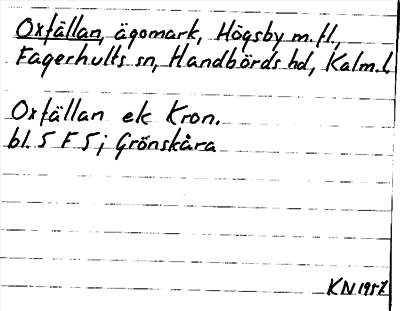 Oxfällan, ägomark, Högsby m.fl.,
Fagerhults sn, Handbörds hd, Kalm.l.
Oxfällan ek Kron.
bl. 5 F 5; Grönskåra
KN 1957